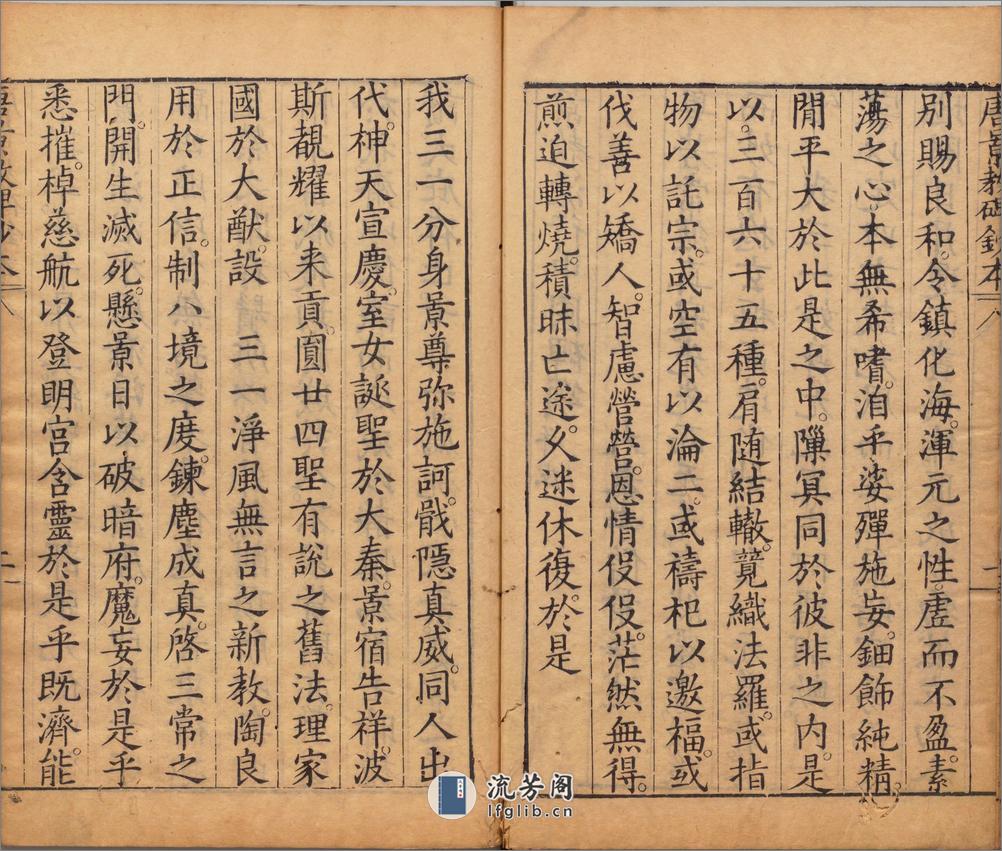 唐景教碑鈔本
別賜良和。令鎮化海。渾元之性。虛而不盈。素
蕩之心。本無希嗜。洎乎娑殫施妄。鈿飾純精。
閒平大於此是之中。隟冥同於彼非之內。是
以。三百六十五種。肩随結轍。竸織法羅。或指
物以託宗。或空有以淪二。或禱祀以邀福。或
伐善以矯人。智慮營營。恩情伇伇。茫然無得。
煎迫轉燒。積昧亡途。久迷休復。於是
我三一分身景尊弥施訶。戢隱真威。同人出
代。神天宣慶。室女誕聖於大秦。景宿告祥。波
斯覩耀以来貢。圎廿四聖有說之舊法。理家
國於大猷。設 三一淨風無言之新教。陶良
用於正信。制八境之度。鍊塵成真。啓三常之
門。開生滅死。懸景日以破暗府。魔妄於是乎
悉摧。棹慈航以登明宮含靈於是乎既濟。能
流芳阁
lfglib.cn